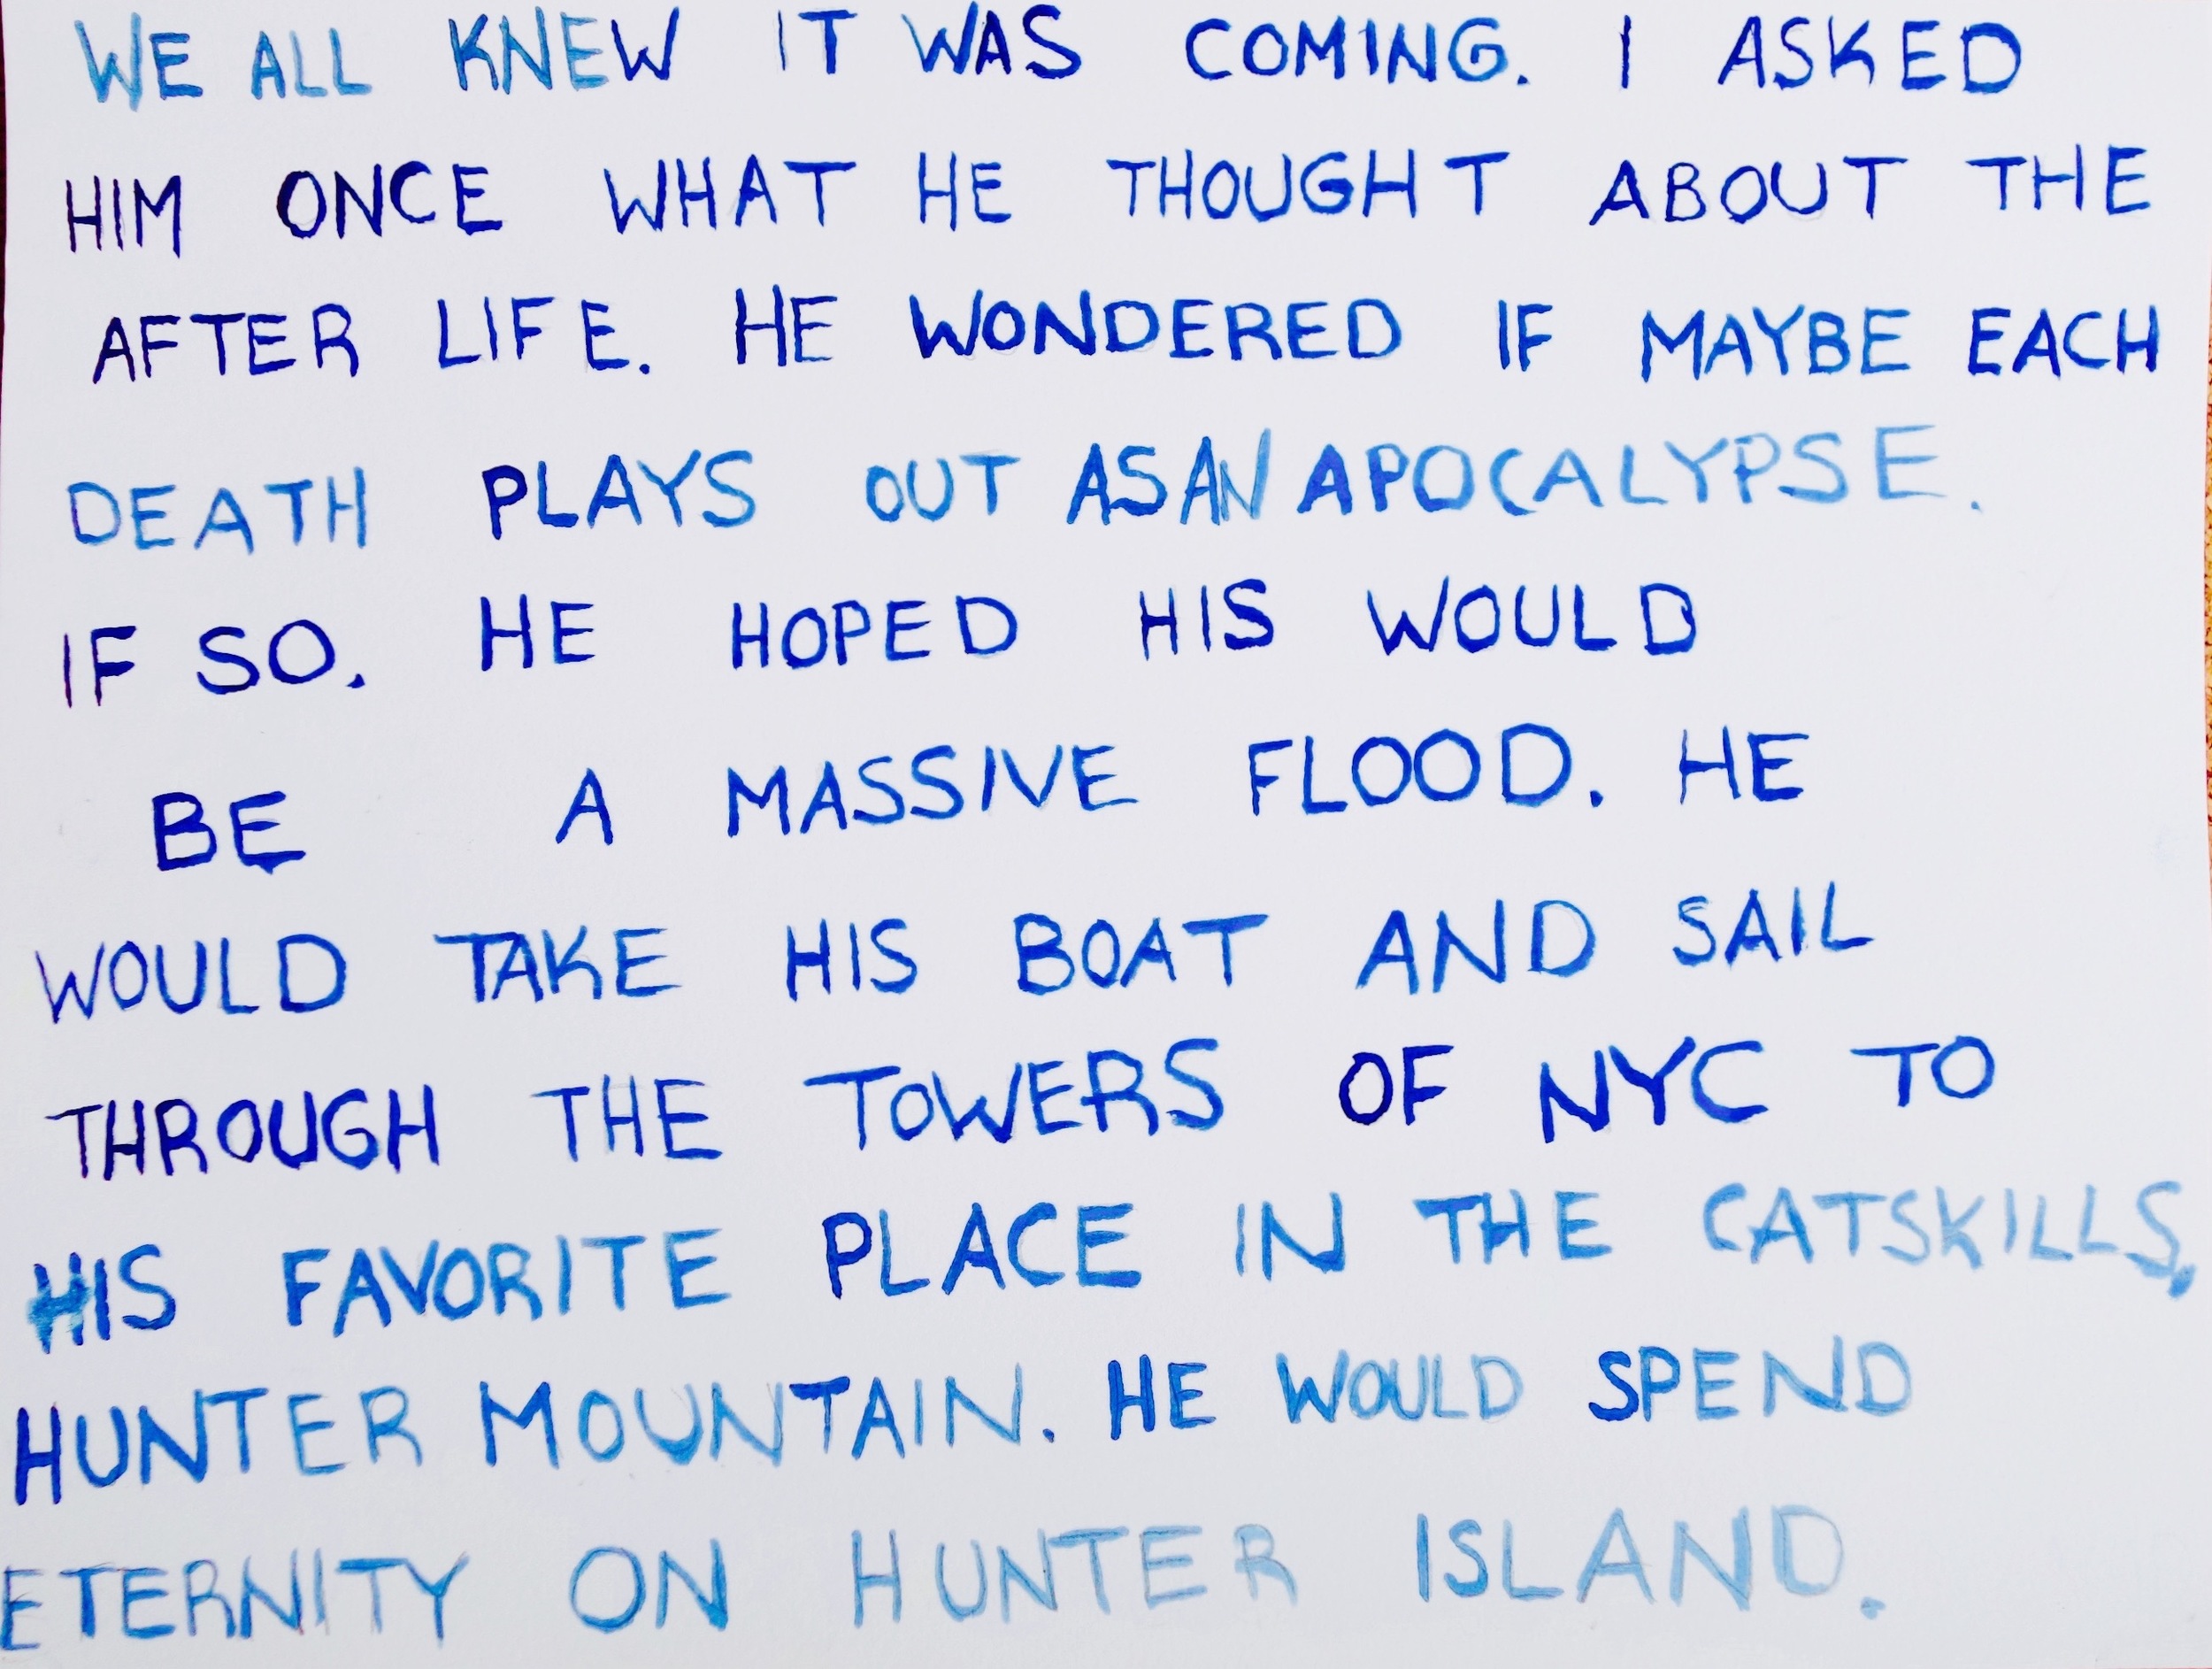 WE ALL KNEW IT WAS COMING. I ASKED
HIM ONCE WHAT HE THOUGHT ABOUT THE
AFTER LIFE. HE WONDERED IF MAYBE EACH
DEATH PLAYS OUT AS AN APOCALYPSE.
IF SO. HE HOPED HIS WOULD
BE A MASSIVE FLOOD. HE
WOULD TAKE HIS BOAT AND SAIL
THROUGH THE TOWERS OF NYC TO
HIS FAVORITE PLACE IN THE CATSKILLS,
HUNTER MOUNTAIN. HE WOULD SPEND
ETERNITY ON HUNTER ISLAND.